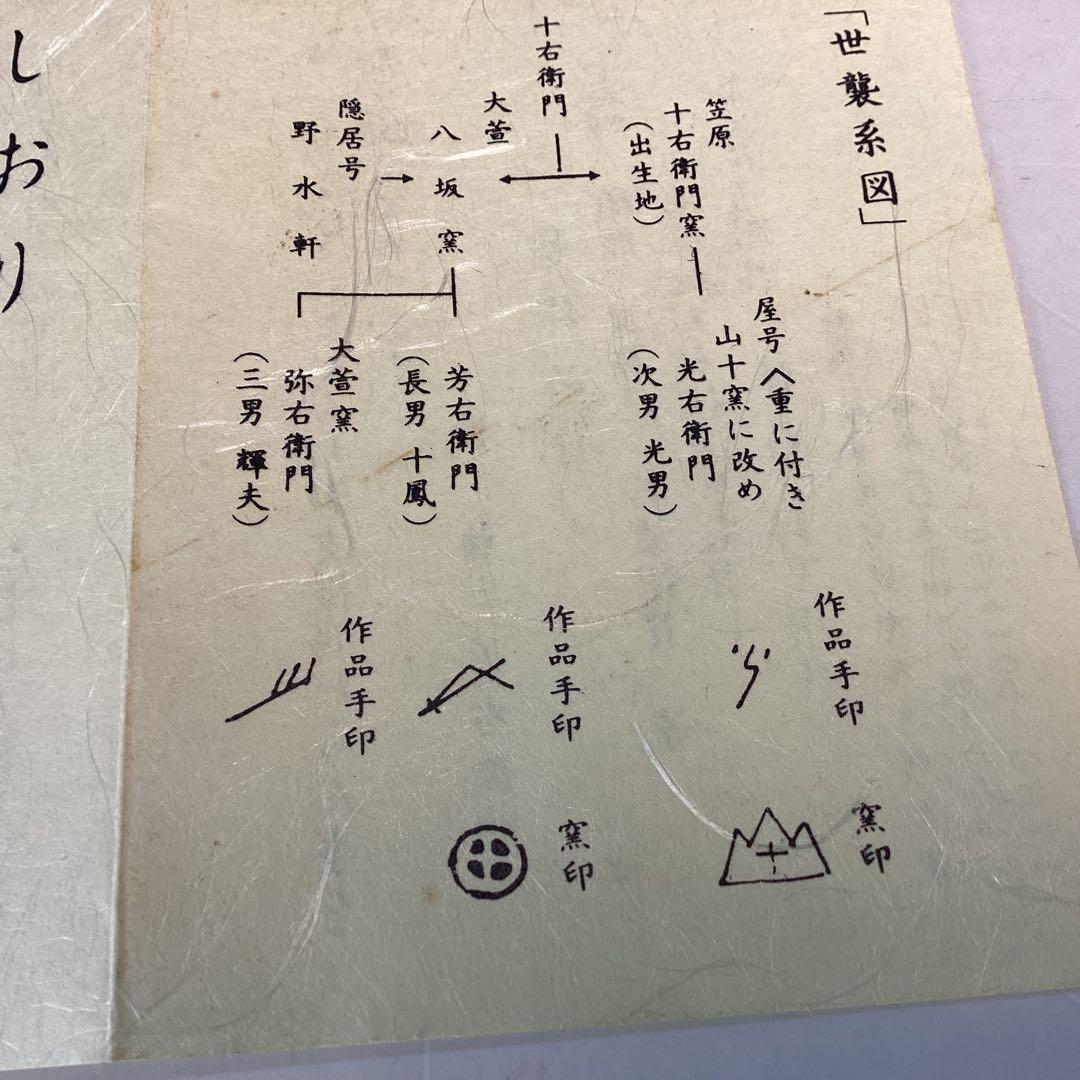 「世襲系図」
十右衛門
笠原
十右衛門窯
(出生地)
屋号八重に付き
山十窯に改め
光右衛門
(次男 光男)
大萱
八坂窯
隠居号
野水軒
芳右衛門
(長男 十鳳)
大萱窯
弥右衛門
(三男 輝夫)
作品手印
作品手印
作品手印
窯印
十
窯印
しおり